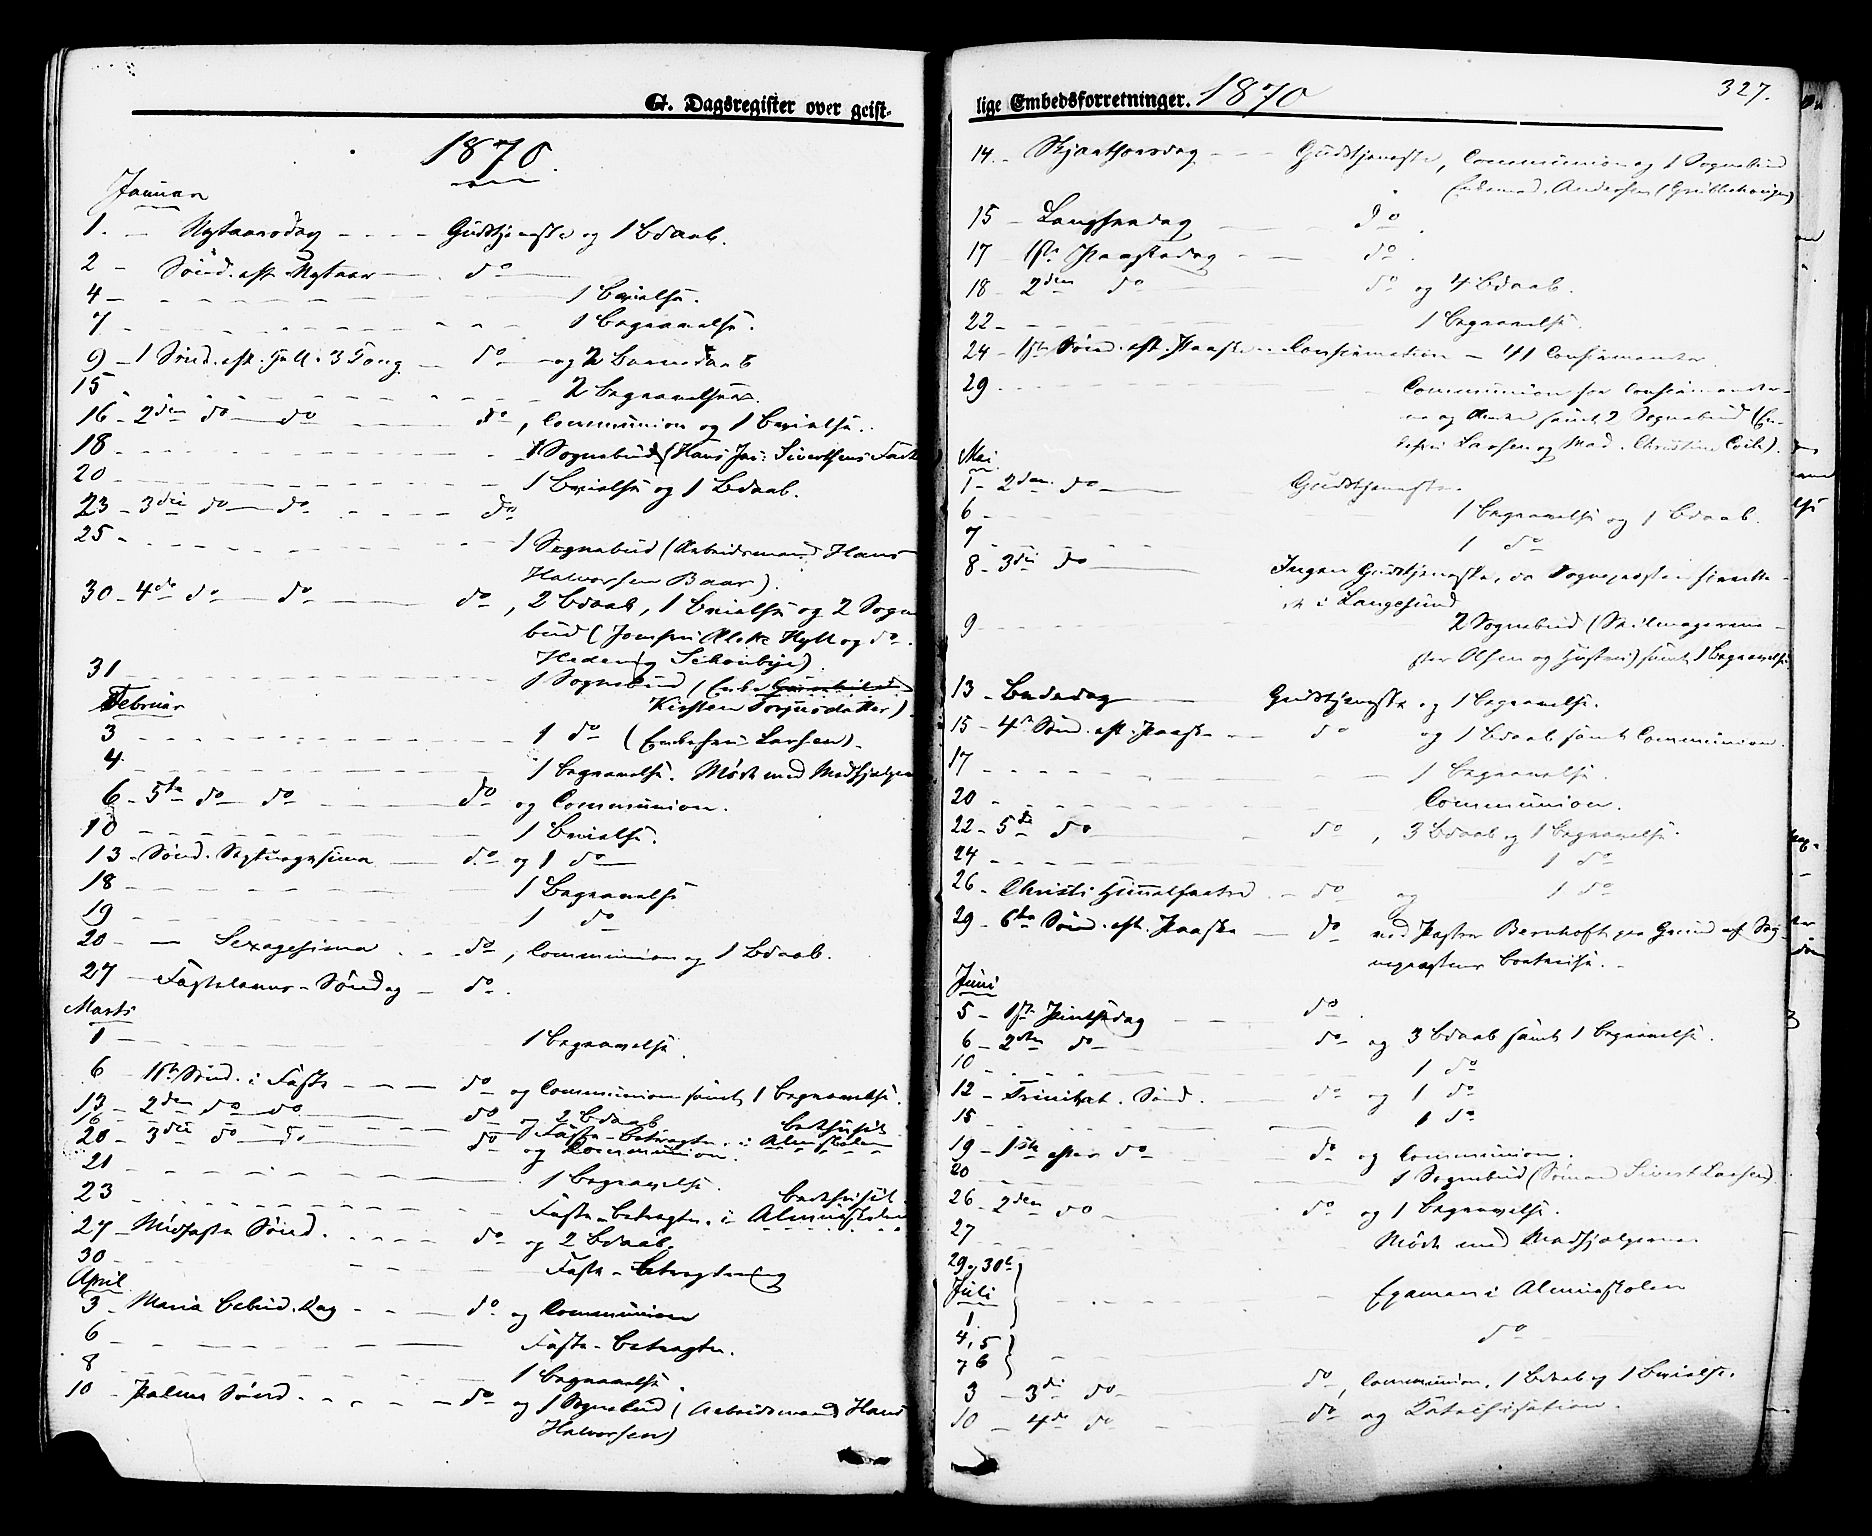 G. Dagsregister over geist-
1870.
Januar
1. – Nytaarsdag – – – – Gudstjeneste og 1 Bdaab.
2 – Sønd. eft. Nytaar – do
4 – 1 Vielse.
7 – 1 Begravelse.
9 – 1 Sønd. eft. Hell. 3 Kong. – do – og 2 Barnedaab
15 – 2 Begravelser.
16 – 2den do – do – do, Communion og 1 Vielse.
18 – 1 Sognebud (Hans Jac: Sivertsens
20 – 1 Vielse og 1 Bdaab.
23 – 3die do – do – do
25 – 1 Sognebud (Arbeidsmand Hans
Halvorsen Baar).
30 – 4de do – do – do, 2 Bdaab, 1 Vielse og 2 Sogne
bud (Jomfru Hytt og do
Hedevig Schønbye).
31 – 1 Sognebud (Enke
Kirsten Torjusdatter).
Februar
3 – 1 do (Enkefru Larsen).
4 – 1 Begravelse. Møde med Medhjælperne
6 – 5te do do – do og Communion.
10 – 1 Vielse.
13 – Sønd. Septuagesima – do og 1 do
18 – 1 Begravelse
19 – 1 do
20 – – Sexagesima – do, Communion og 1 Bdaab.
27 – Fastelavns-Søndag – do.
Marts
1 – 1 Begravelse.
6 – 1ste Sønd. i Faste – – – do og Communion samt 1 Begravelse.
13 – 2den do do – do og 2 Bdaab
16 – Faste-betragtn. i Almueskolen Bedehuset
20 – 3die do do – do og Communion.
21 – 1 Begravelse.
23 – Faste-betragtn. i Almueskolen Bedehuset.
27 – Midfaste Sønd. – do og 2 Bdaab.
30 – Faste-betragtning
April
3 – Mariæ Bebud. Dag – – – do og Communion
6 – Faste-betragtn.
8 – 1 Begravelse.
10 – Palme Sønd. – do og 1 Sognebud (Arbeidsmand Hans
Halvorsen)
lige Embedsforretninger. 1870
327.
14 – Skjærthorsdag – – – Gudstjeneste, Communion og 1 Sognebud
Andersen
15 – Langfredag – do.
17 – 1ste Paaskedag – do.
18 – 2den do – do og 4 Bdaab.
22 – 1 Begravelse.
24 – 1ste Sønd. eft. Paaske – Confirmation – 41 Confirmanter
29 – Communion for Confirmanter-
ne og Andre samt 2 Sognebud (En-
kefru Larsen og Mad. Christine
Mai
1 – 2den do – Gudstjeneste.
6 – 1 Begravelse og 1 Bdaab.
7 – 1 do
8 – 3die do – Ingen Gudstjeneste, da Sognepræsten
i Langesund
9 – 2 Sognebud (Seilmagerme-
ster Olsen og Hustru) samt 1 Begravelse
13 – Bededag – Gudstjeneste og 1 Begravelse.
15 – 4de Sønd. eft. Paaske – – do og 1 Bdaab samt Communion.
17 – 1 Begravelse.
20 – Communion.
22 – 5te do – do, 3 Bdaab og 1 Begravelse.
24 – 1 do
26 – Christi Himmelfartsd. – do og 1 do
29 – 6te Sønd. eft. Paaske – do ved Pastor Bernhoft paa Grund af Sog-
nepræstens Bortreise. –
Juni
5 – 1ste Pintsedag – do.
6 – 2den do – do og 3 Bdaab samt 1 Begravelse.
10 – 1 do
12 – Trinitat. Sønd. – do og 1 do
15 – 1 do
19 – 1ste efter do – do og Communion.
20 – 1 Sognebud (Sømand Sivert Larsen)
26 – 2den do – do og 1 Begravelse.
27 – Møde med Medhjælperne
29 og 30te
Juli – Examen i Almueskolen
1
4, 5 – do
og 6
3 – 3die do – do, Communion, 1 Bdaab og 1 Vielse.
10 – 4de do – do og Katechisation.